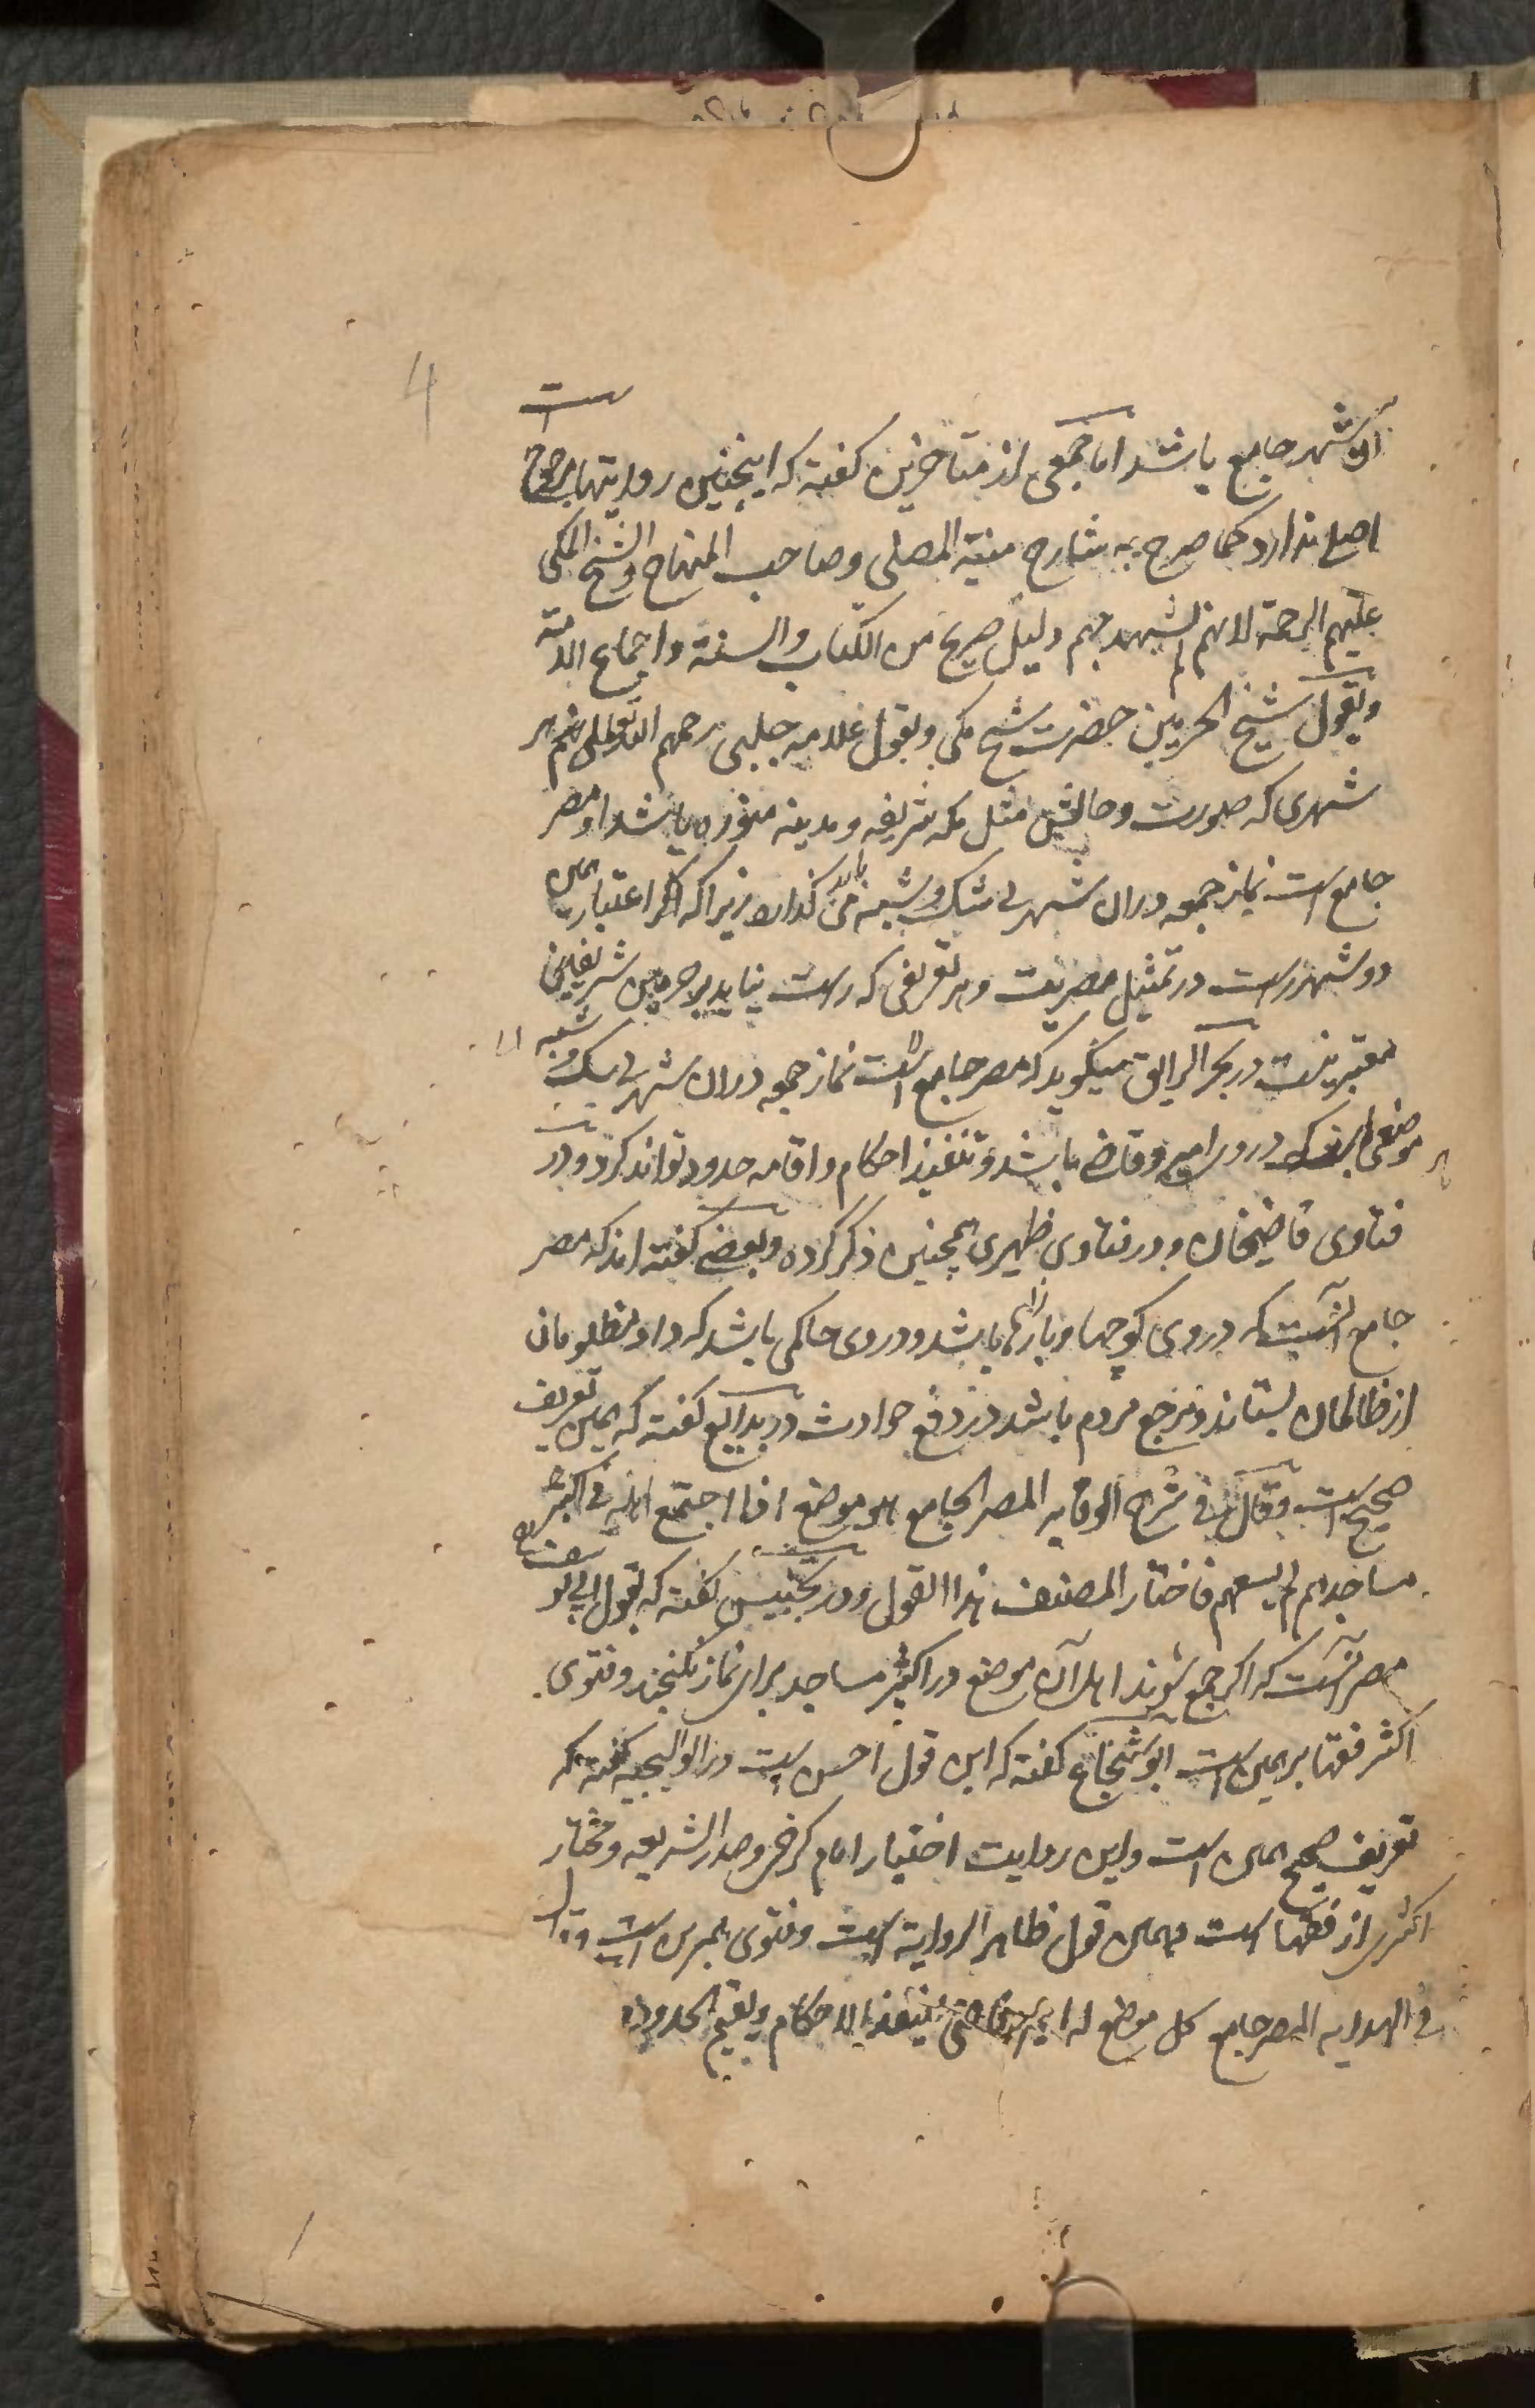 4
است
آن شهر جامع باشد اما جمعی از متاخرین گفته که اینچنین روایتها مرجوح
اصلے ندارد کما صرح به شارح منیة المصلی و صاحب المنهاج والشیخ المکی
علیهم الرحمة لانهم لم یشهد بهم دلیل صریح من الکتاب والسنة واجماع الامة
وبقول شیخ الحرمین حضرت شیخ مکی وبقول علامه جلبی رحمهم الله تعالی هر
شهری که صورت وحالش مثل مکه شریفه و مدینه منوره باشد او مصر
جامع است نماز جمعه دران شهر بی شک وشبه می باید گذارد زیرا که اعتبار همین
دو شهر است در تمثیل مصریت و هر تعریفی که راست نیاید بر حرمین شریفین
معتبر نیست در بحر الرایق میگوید که مصر جامع است نماز جمعه دران شهر بی شک وشبه
موضعی در وی امیر و قاضے باشد و تنفیذ احکام و اقامه حدود تواند کرد و در
فتاوی قاضیخان و در فتاوی ظهیری همچنین ذکر کرده و بعضے گفته اند که مصر
جامع آنست که در وی کوچها و بازارها باشد و در وی حاکمی باشد که داد مظلومان
از ظالمان بستاند و مرجع مردم باشد در دفع حوادث در بدایع گفته که همین تعریف
صحیح است وقال فی شرح الوقایه المصر الجامع هو موضع اذا اجتمع اهله فی اکبر
مساجدهم لم یسعهم فاختار المصنف هذا القول و در تجنیس گفته که بقول ابی یوسف
مصر آنست که اگر جمع شوند اهل آن موضع در اکبر مساجد برای نماز نگنجند و فتوی
اکثر فقها بر همین است ابو شجاع گفته که این قول احسن است در الوالجیه گفته که
تعریف صحیح همین است و این روایت اختیار امام کرخی و صدر الشریعه و مختار
اکثری از فقها است و همین قول ظاهر الروایة است و فتوی بهمین است وقال
فی الهدایه المصر جامع کل موضع له امیر وقاضی ینفذ الاحکام ویقیم الحدود